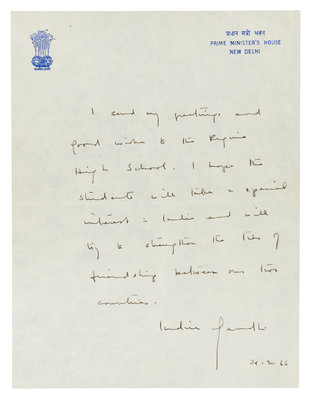 प्रधान मंत्री भवन
PRIME MINISTER'S HOUSE
NEW DELHI
I send my greetings and
good wishes to the Regina
High School. I hope the
students will take a special
interest in India and will
try to strengthen the ties of
friendship between our two
countries.
Indira Gandhi